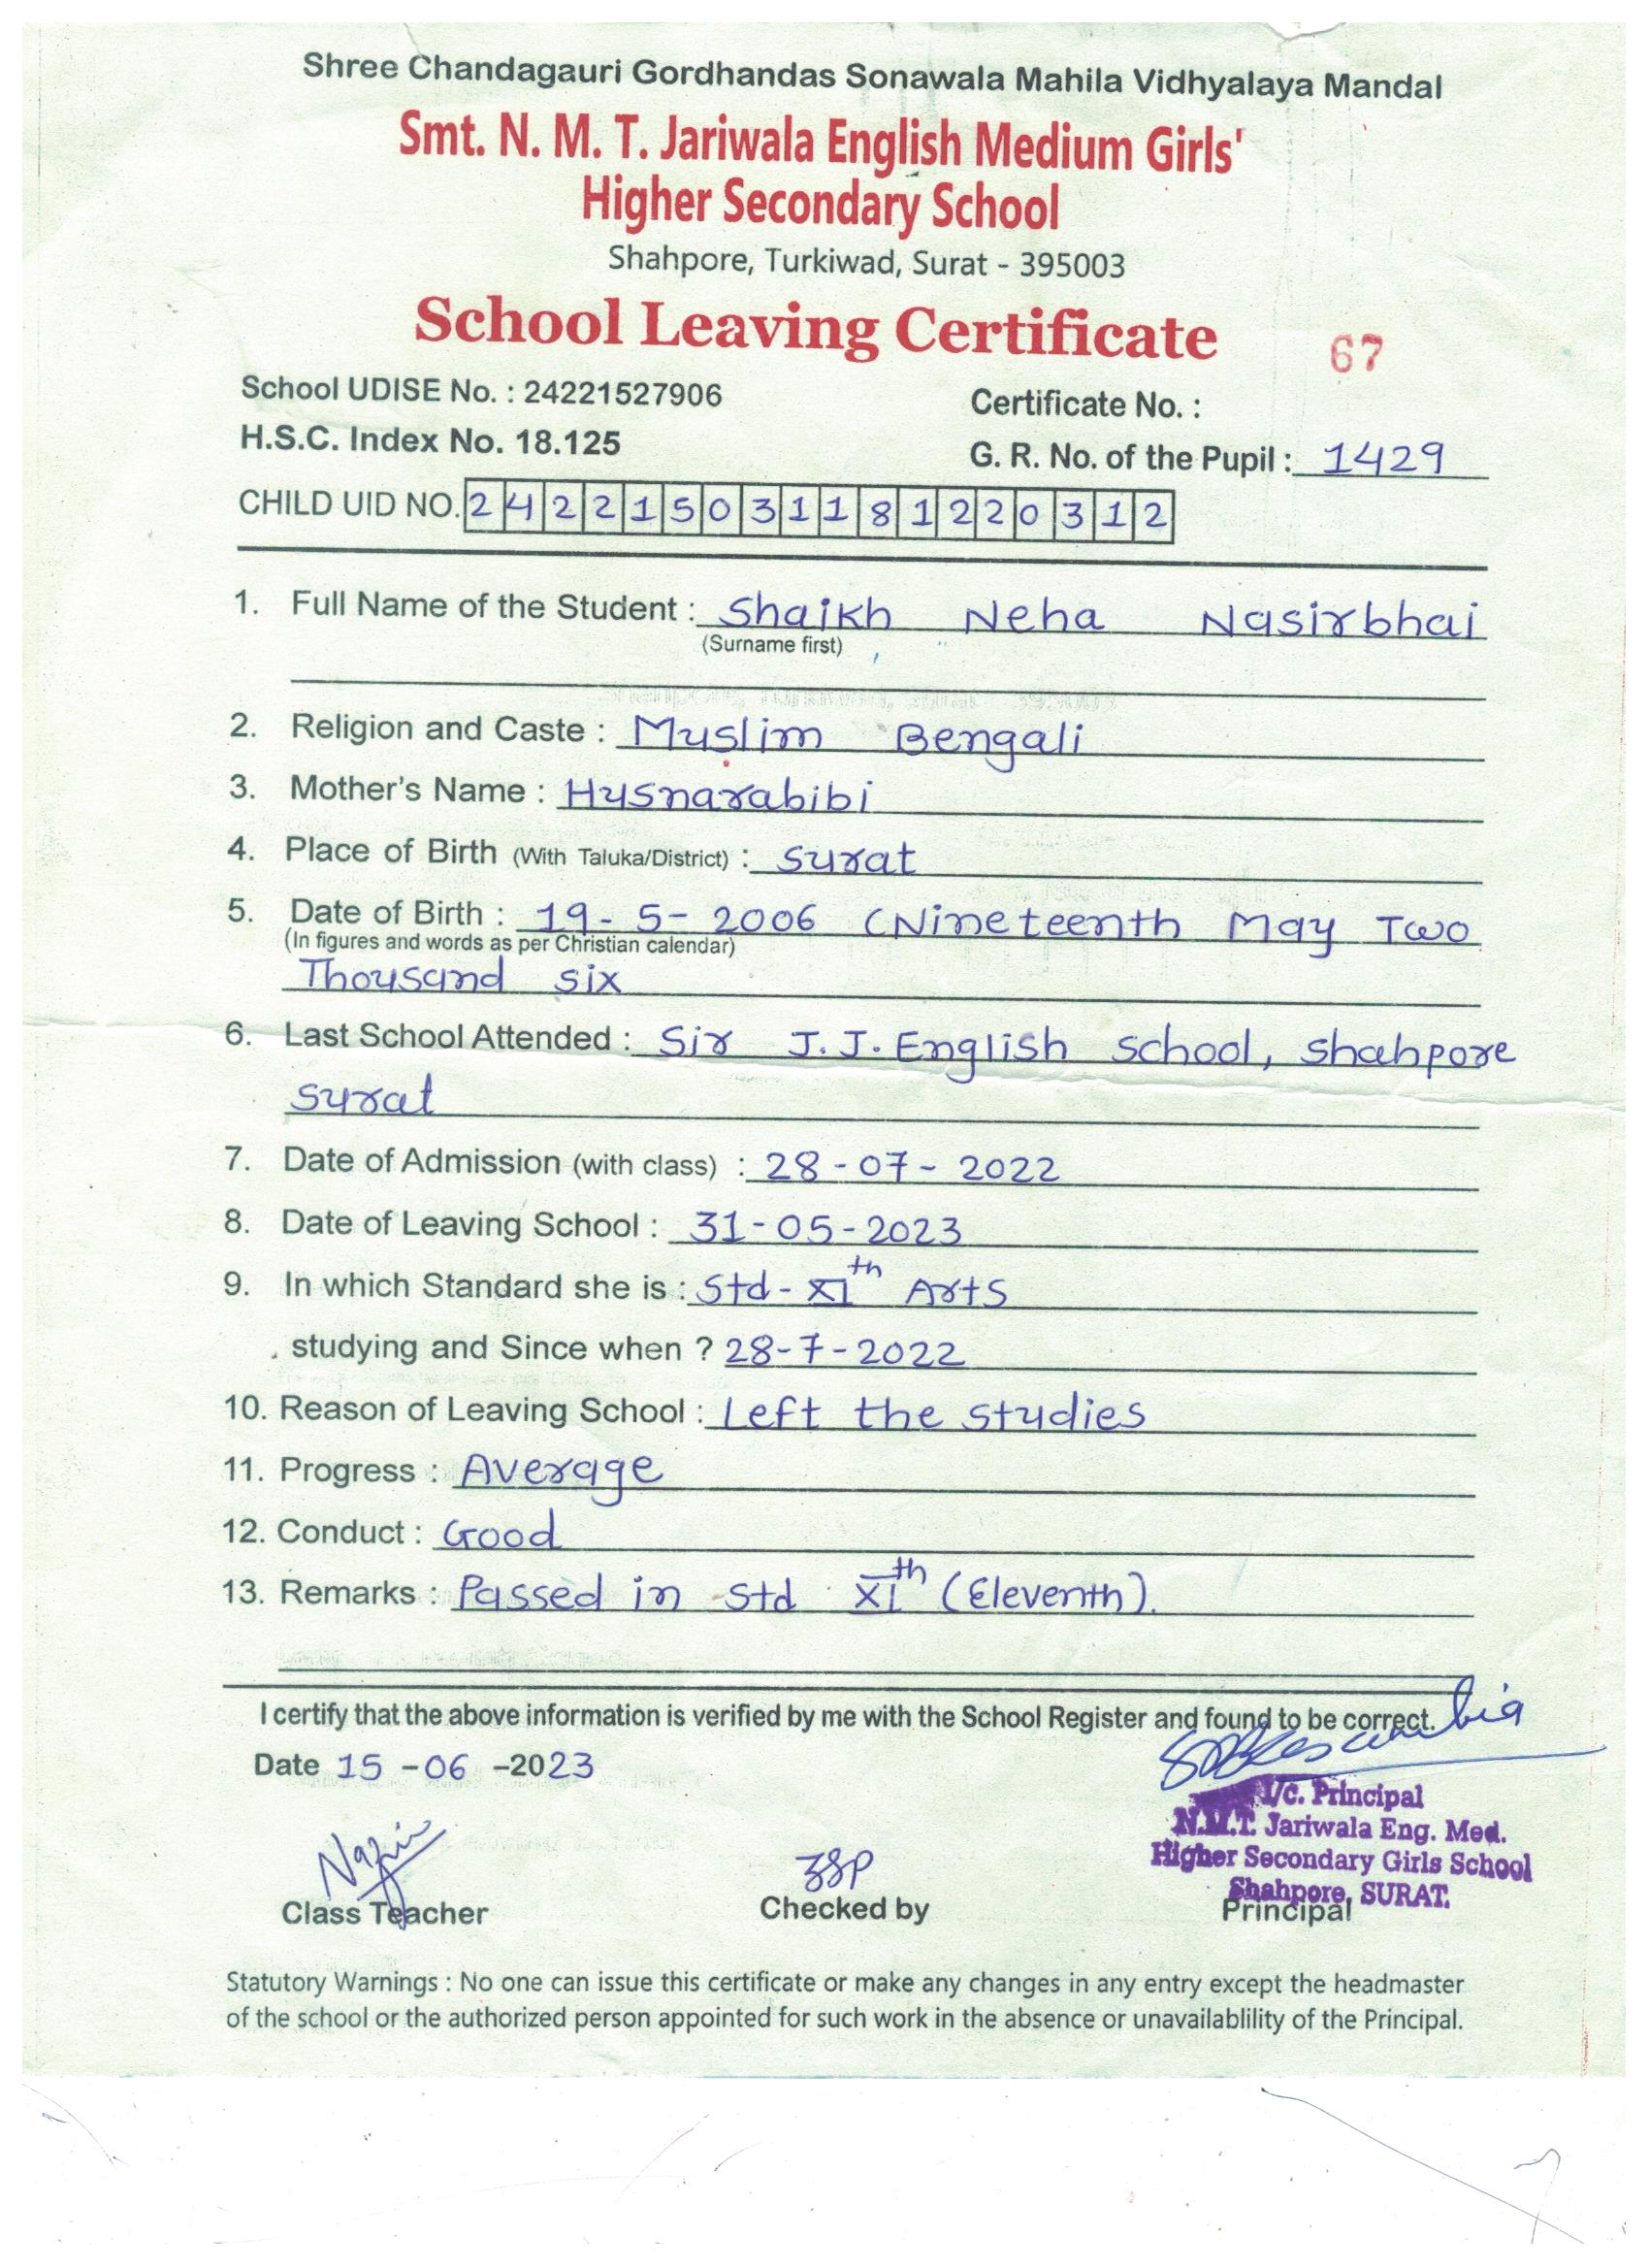 Shree Chandagauri Gordhandas Sonawala Mahila Vidhyalaya Mandal
Smt. N. M. T. Jariwala English Medium Girls'
Higher Secondary School
Shahpore, Turkiwad, Surat - 395003
School Leaving Certificate
67
School UDISE No. : 24221527906
Certificate No. :
H.S.C. Index No. 18.125
G. R. No. of the Pupil : 1429
CHILD UID NO. 242215031181220312
1. Full Name of the Student : Shaikh Neha Nasirbhai
(Surname first)
2. Religion and Caste : Muslim Bengali
3. Mother's Name : Husnarabibi
4. Place of Birth (With Taluka/District) : Surat
5. Date of Birth : 19-5-2006 (Nineteenth May Two
(In figures and words as per Christian calendar)
Thousand six
6. Last School Attended : Sir J.J. English school, shahpore
surat
7. Date of Admission (with class) : 28-07-2022
8. Date of Leaving School : 31-05-2023
9. In which Standard she is : Std- XIth Arts
studying and Since when ? 28-7-2022
10. Reason of Leaving School : Left the studies
11. Progress : Average
12. Conduct : Good
13. Remarks : Passed in std XIth (Eleventh).
I certify that the above information is verified by me with the School Register and found to be correct.
Date 15-06-2023
I/c. Principal
N.M.T. Jariwala Eng. Med.
Higher Secondary Girls School
Shahpore, SURAT.
Class Teacher Checked by Principal
Statutory Warnings : No one can issue this certificate or make any changes in any entry except the headmaster
of the school or the authorized person appointed for such work in the absence or unavailablility of the Principal.